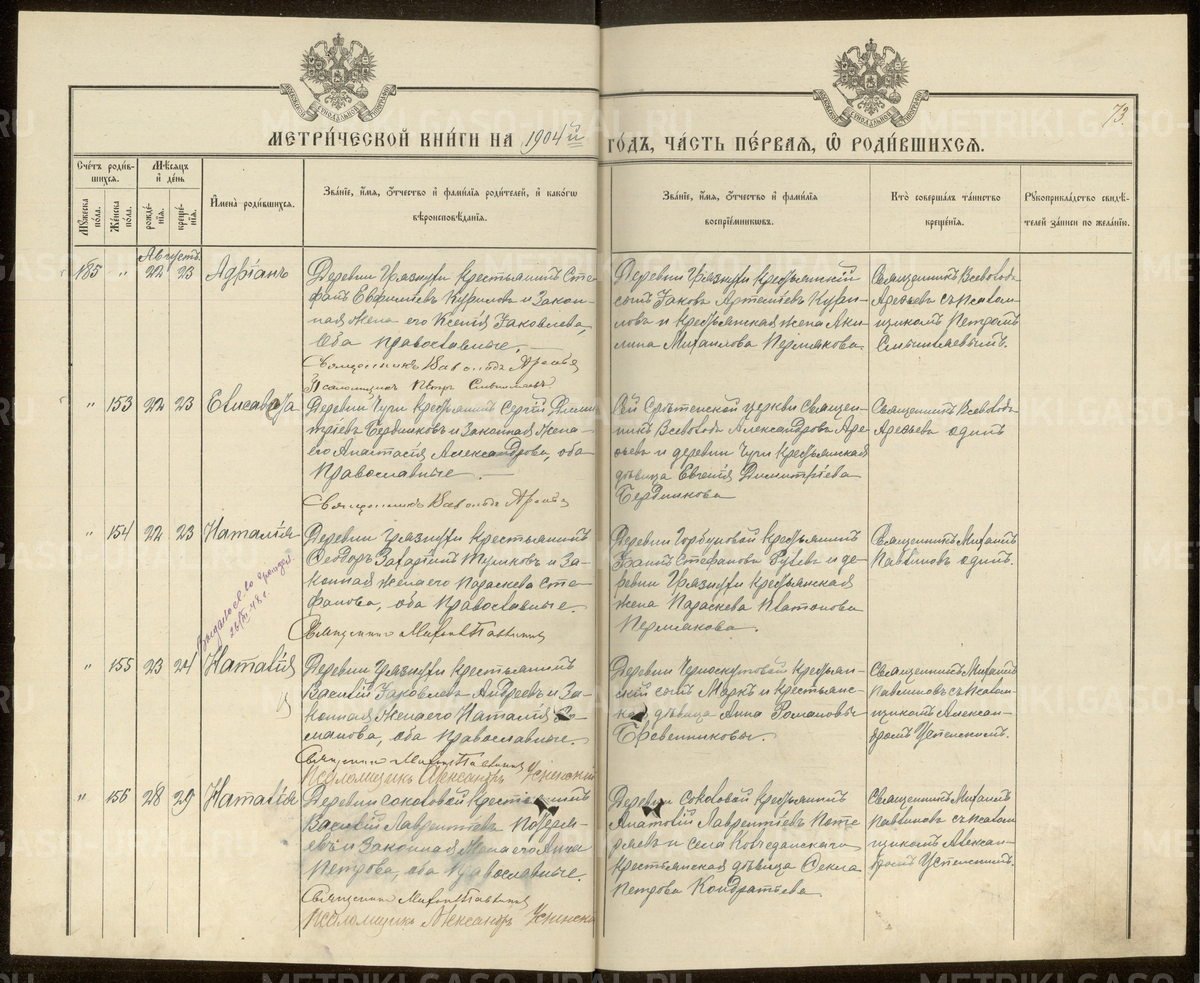 73
МЕТРИ́ЧЕСКОЙ КНИ́ГИ НА 1904й ГО́ДЪ, ЧА́СТЬ ПЕ́РВАЯ, Ѡ РОДИ́ВШИХСЯ.
Сче́тъ роди́вшихся.
Му́жеска пола.
Же́нска пола.
Мѣ́сяцъ и́ де́нь
рожде́нія.
креще́нія.
И҆мена̀ роди́вшихся.
Зва́ніе, и҆́мя, ѻ҆́тчество и҆ фами́лія роди́телей, и҆ како́гѡ
вѣроисповѣ́данія.
Зва́ніе, и҆́мя, ѻ҆́тчество и҆ фами́лія
воспріе́мниковъ.
Кто̀ соверша́лъ та́инство
креще́нія.
Рꙋкоприкла́дство свидѣ́-
телей за́писи по жела́нію.
Августъ
185 " 22 23 Адріанъ
Деревни Грязнухи Крестьянинъ Сте-
фанъ Евфиміевъ Куриловъ и закон-
ная жена его Ксенія Іаковлева,
оба православные.
Священникъ Всеволодъ Арефьевъ
Псаломщикъ Петръ Смышляевъ
Деревни Грязнухи Крестьянскій
сынъ Іаковъ Артеміевъ Кури-
ловъ и Крестьянская жена Аки-
лина Михаилова Пермякова.
Священникъ Всеволодъ
Арефьевъ съ псалом-
щикомъ Петромъ
Смышляевымъ.
" 153 22 23 Елисавета
Деревни Чуги Крестьянинъ Сергій Дими-
тріевъ Бердниковъ и законная жена
его Анастасія Александрова, оба
православные.
Священникъ Всеволодъ Арефьевъ
Сей Срѣтенской церкви Священ-
никъ Всеволодъ Александровъ Аре-
фьевъ и деревни Чуги Крестьянская
дѣвица Евгенія Димитріева
Бердникова
Священникъ Всеволодъ
Арефьевъ одинъ
" 154 22 23 Наталія
Деревни Грязнухи Крестьянинъ
Ѳеодоръ Захаріинъ Тушковъ и за-
конная жена его Параскева Сте-
фанова, оба православные
Священникъ Михаилъ Павлиновъ
Деревни Горбуновой Крестьянинъ
Іоаннъ Стефановъ Гуляевъ и де-
ревни Грязнухи Крестьянская
жена Параскева Платонова
Пермякова.
Священникъ Михаилъ
Павлиновъ одинъ.
" 155 23 24 Наталія
Деревни Грязнухи Крестьянинъ
Василій Іаковлевъ Андреевъ и за-
конная жена его Наталія Ро-
манова, оба православные.
Священникъ Михаилъ Павлиновъ
Псаломщикъ Александръ Успенскій
Деревни Черноскутовой Крестьян-
скій сынъ Маркъ и Крестьянс-
кая дѣвица Анна Романовы
Бревенниковы.
Священникъ Михаилъ
Павлиновъ съ псалом-
щикомъ Алексан-
дромъ Успенскимъ.
" 156 28 29 Наталія
Деревни Соколовой Крестьянинъ
Василій Лаврентіевъ Потеря-
евъ и законная жена его Анна
Петрова, оба православные.
Священникъ Михаилъ Павлиновъ
Псаломщикъ Александръ Успенскій
Деревни Соколовой Крестьянинъ
Анатолій Лаврентіевъ Поте-
ряевъ и села Колчеданскаго
Крестьянская дѣвица Ѳекла
Петрова Кондратьева
Священникъ Михаилъ
Павлиновъ съ псалом-
щикомъ Алексан-
дромъ Успенскимъ.
METRIKI.GASO-URAL.RU